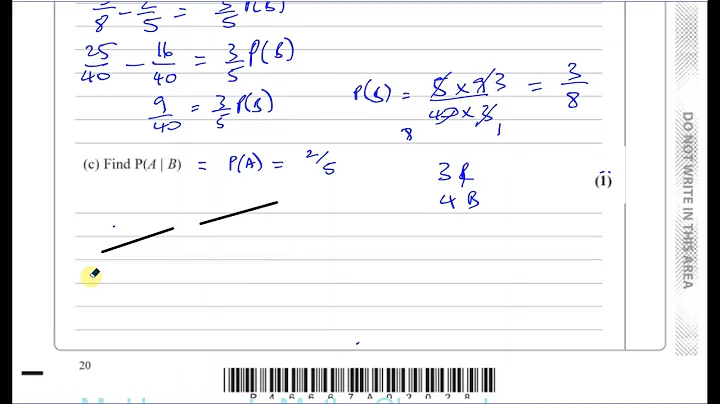 /8 - /5 = 3/5 P(B)
25/40 - 16/40 = 3/5 P(B)
9/40 = 3/5 P(B)
P(B) = 5 × 9 3 / 40 × 3 = 3/8
8 1
(c) Find P(A | B) = P(A) = 2/5
3 R
4 B
(1)
DO NOT WRITE IN THIS AREA
20